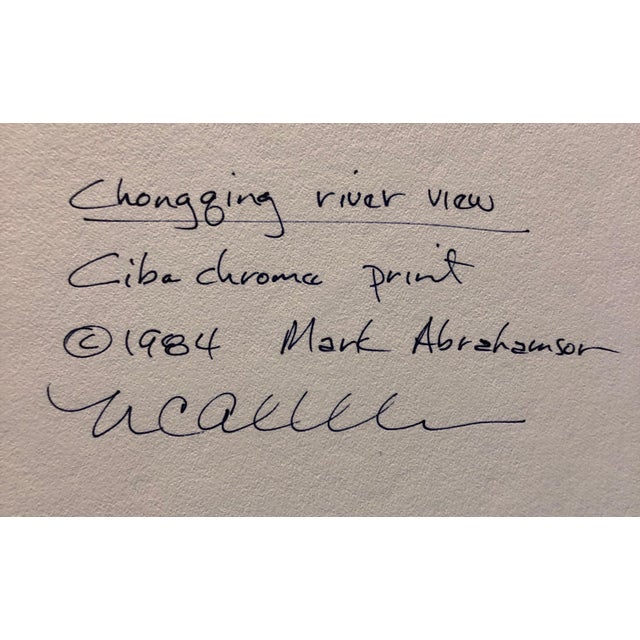 Chongqing river view
Cibachrome print
©1984 Mark Abrahamson